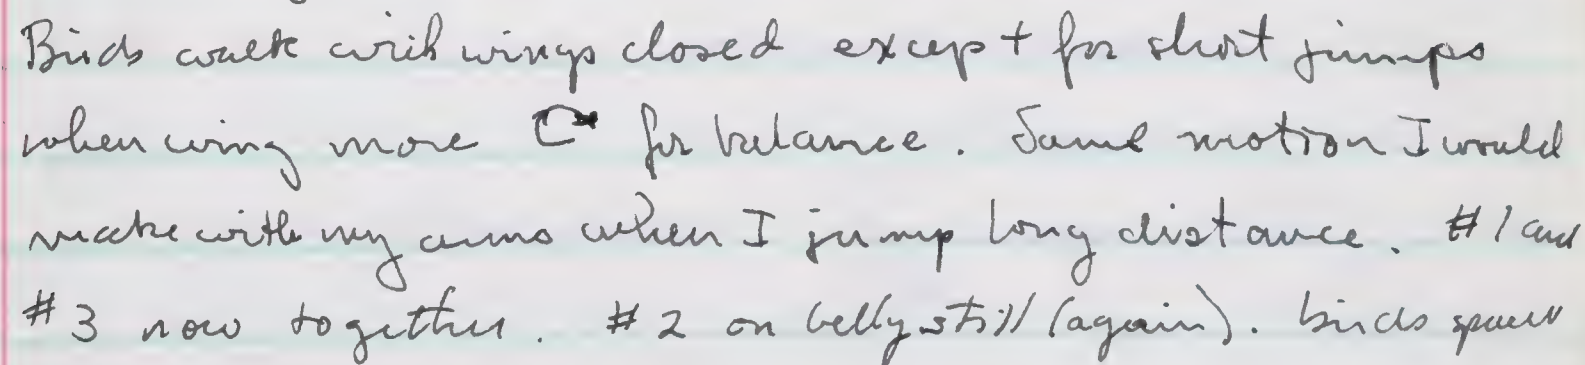 Birds walk with wings closed except for short jumps
when wing move for balance. Same motion I would
make with my arms when I jump long distance. #1 and
#3 now together. #2 on belly still (again). birds